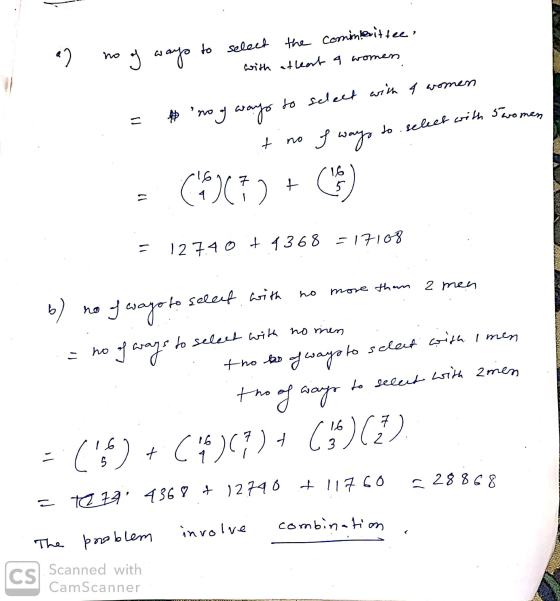 a) no of ways to select the committee,
with atleast 4 women
= no of ways to select with 4 women
+ no of ways to select with 5 women
= (16 4)(7 1) + (16 5)
= 12740 + 4368 = 17108
b) no of ways to select with no more than 2 men
= no of ways to select with no men
+ no of ways to select with 1 men
+ no of ways to select with 2 men
= (16 5) + (16 4)(7 1) + (16 3)(7 2)
= 4368 + 12740 + 11760 = 28868
The problem involve combination.
CS Scanned with
CamScanner